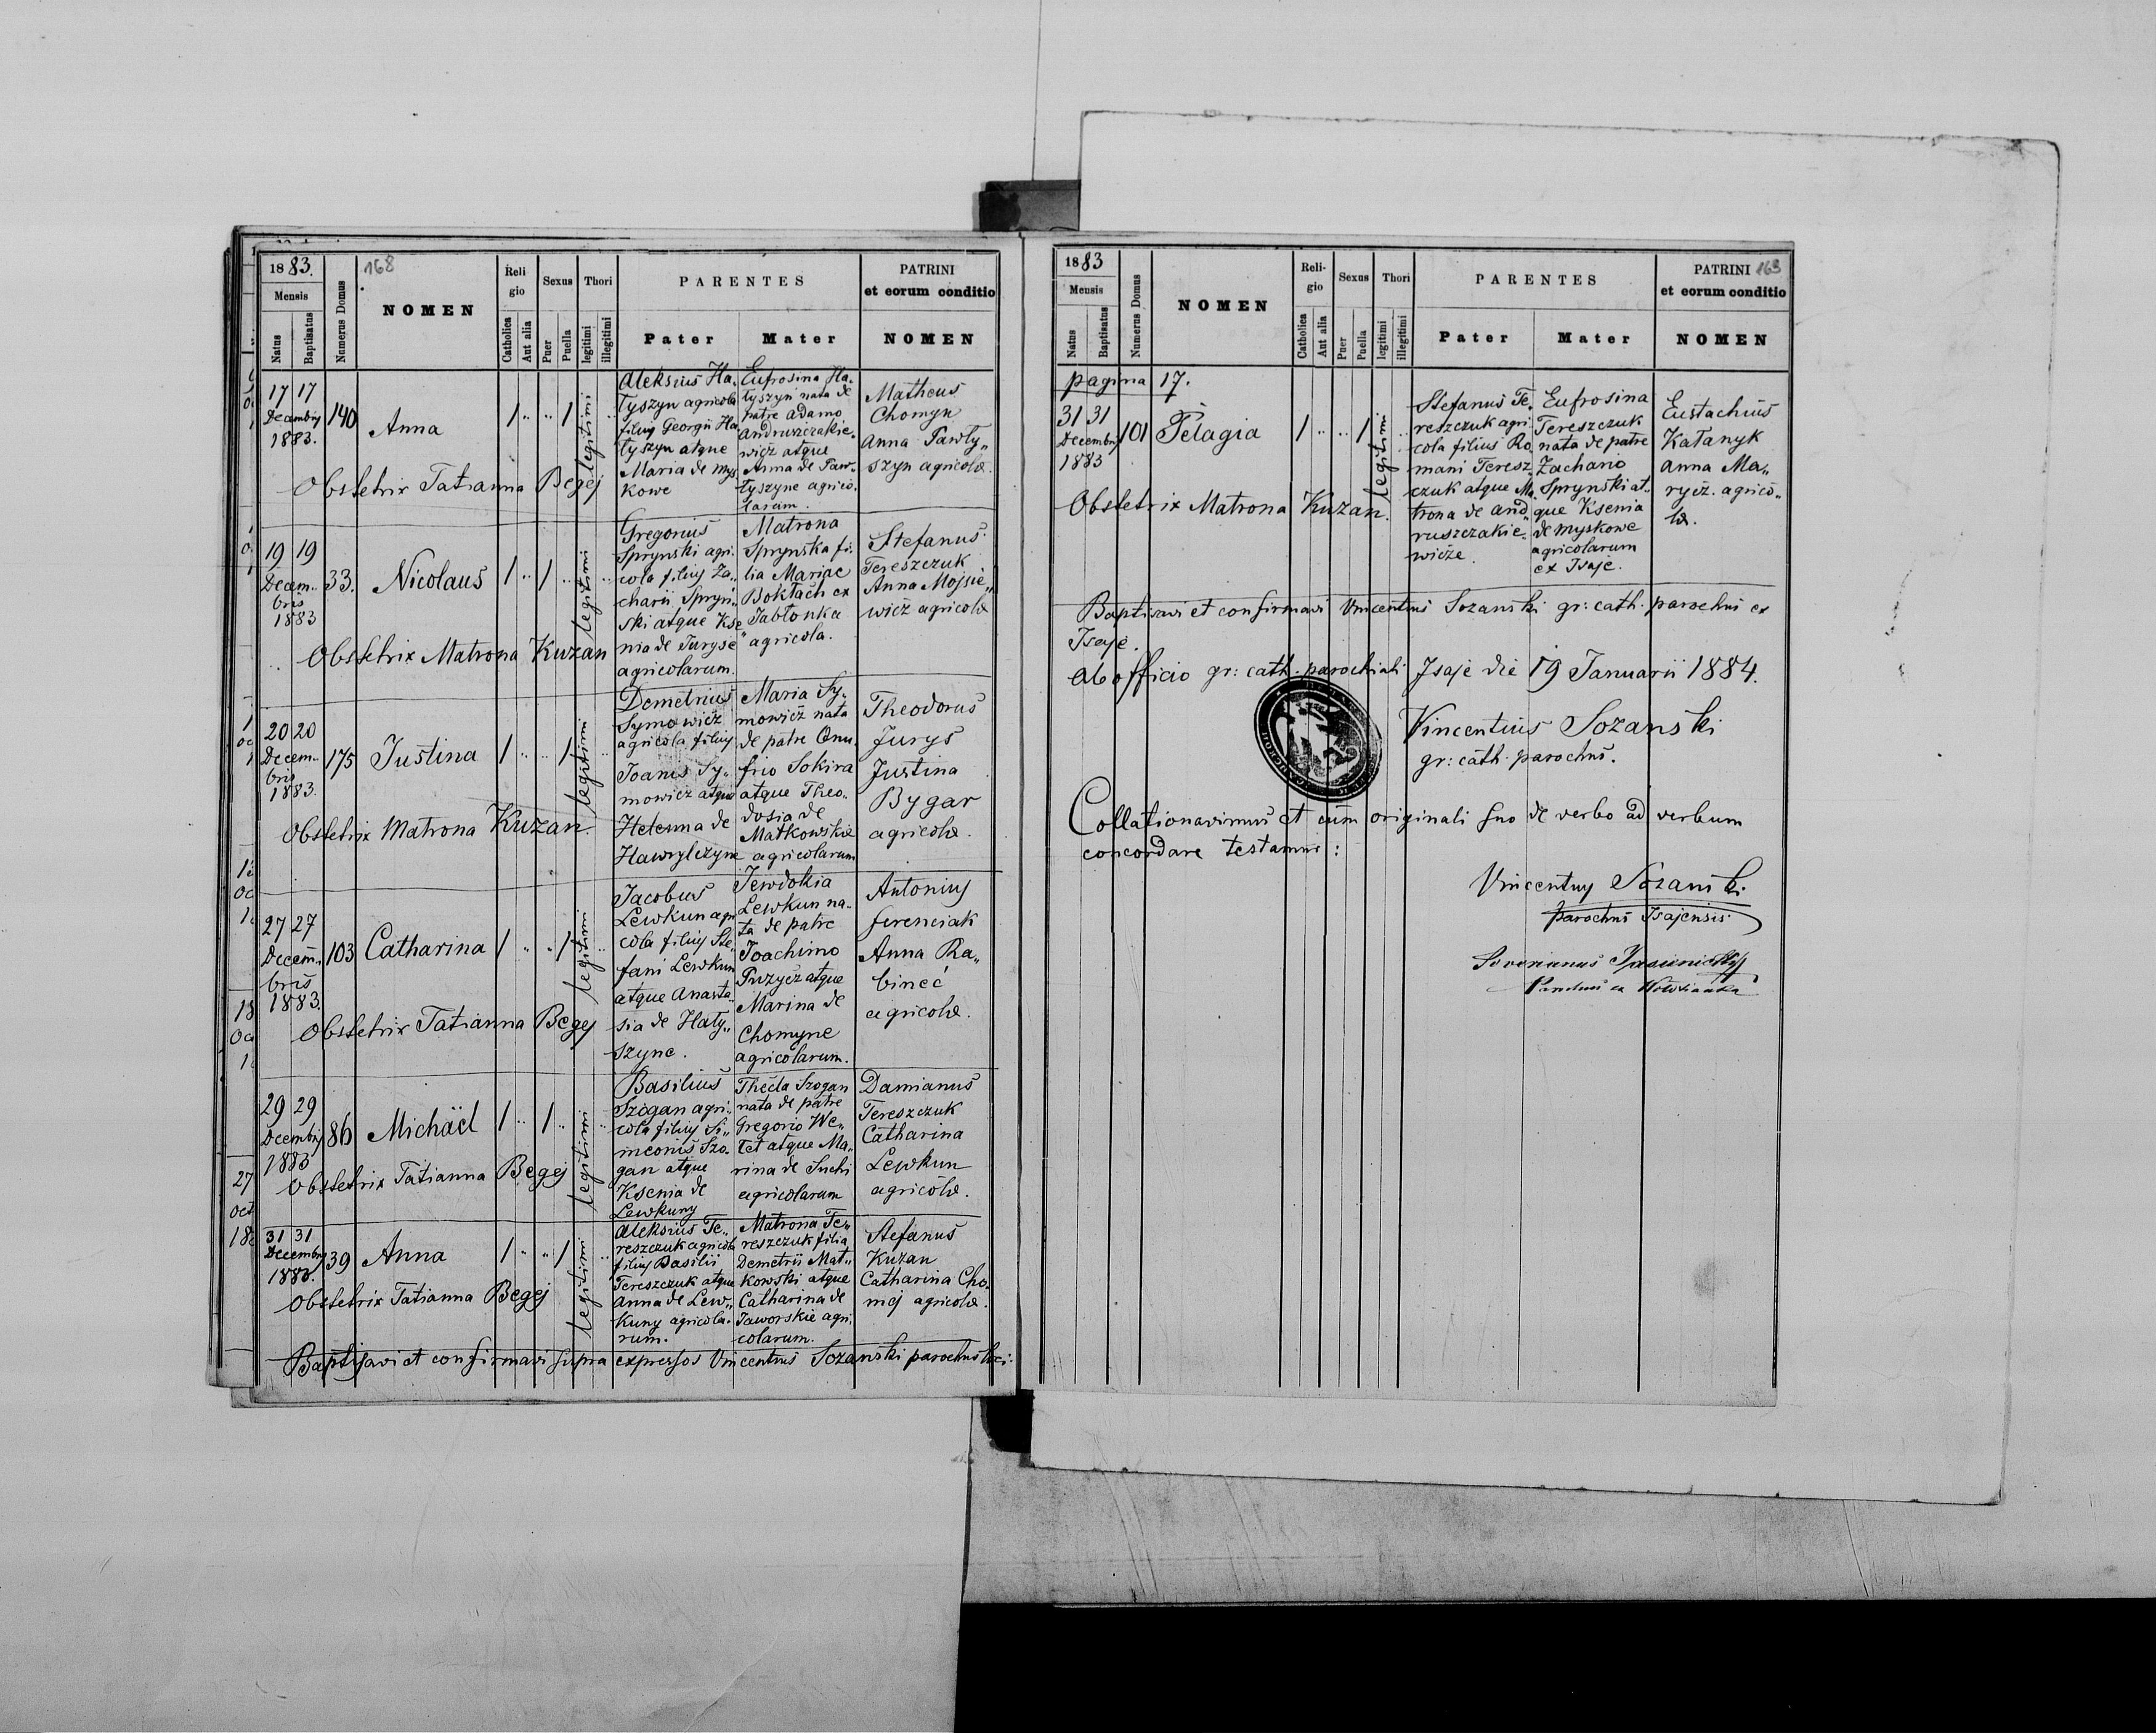 1883.
168
Mensis
Natus
Baptisatus
Numerus Domus
NOMEN
Religio
Catholica
Aut alia
Sexus
Puer
Puella
Thori
legitimi
illegitimi
PARENTES
Pater
Mater
PATRINI
et eorum conditio
NOMEN
17 17
Decembris
1883.
140
Anna
1 " " 1
legitimi
Aleksius Ha-
tyszyn agricola
filius Georgii Ha
tyszyn atque
Maria de Mys
kowe
Eufrosina Ha-
tyszyn nata de
patre Adamo
Andruszczakie-
wicz atque
Anna de Paw-
tyszyne agrico-
larum.
Matheus
Chomyn
Anna Pawty„
szyn agricolæ.
Obstetrix Tatianna Begej
19 19
Decem„
bris
1883
33.
Nicolaus
1 " 1 "
legitimi
Gregorius
Sprynski agri-
cola filius Za„
charii Spryn„
ski atque Kse
nia de Juryse
agricolarum.
Matrona
Sprynska fi-
lia Mariae
Boktach ex
Jabłonka
agricola.
Stefanus
Tereszczuk
Anna Mojsie„
wicz agricolæ
Obstetrix Matrona Kuzan
20 20
Decem„
bris
1883.
175
Justina
1 " " 1
legitimi
Demetrius
Symowicz
agricola filius
Joanis Sy„
mowicz atque
Helenna de
Hawrylczyne
Maria Sy-
mowicz nata
de patre Onu-
frio Sokira
atque Theo„
dosia de
Matkowskie
agricolarum
Theodorus
Jurys
Justina
Bygar
agricolæ.
Obstetrix Matrona Kuzan.
27 27
Decem„
bris
1883.
103
Catharina
1 " " 1
legitimi
Jacobus
Lewkun agri
cola filius Ste„
fani Lewkun
atque Anasta-
sia de Haty„
szyne.
Jewdokia
Lewkun na-
ta de patre
Joachimo
Puzycz atque
Marina de
Chomyne
agricolarum.
Antonius
ferenciak
Anna Ra„
bineć
agricolæ.
Obstetrix Tatianna Begej
29 29
Decembris
1883
86
Michäel
1 " 1 "
legitimi
Basilius
Szogan agri„
cola filius Si„
meonis Szo-
gan atque
Ksenia de
Lewkuny
Thecla Szogan
nata de patre
Gregorio We„
tet atque Ma„
rina de Suchi
agricolarum
Damianus
Tereszczuk
Catharina
Lewkun
agricolæ.
Obstetrix Tatianna Begej
31 31
Decembris
1883.
39
Anna
1 " " 1
legitimi
Aleksius Te„
reszczuk agricola
filius Basilii
Tereszczuk atque
Anna de Lew„
kuny agricola-
rum.
Matrona Te„
reszczuk filia
Demetrii Mat„
kowski atque
Catharina de
Jaworskie agri-
colarum.
Stefanus
Kuzan
Catharina Cho-
mej agricolæ.
Obstetrix Tatianna Begej
Baptisavi et confirmavi supra expressos Vincentius Sozański parochus loci.
1883
Mensis
Natus
Baptisatus
Numerus Domus
NOMEN
Religio
Catholica
Aut alia
Sexus
Puer
Puella
Thori
legitimi
illegitimi
PARENTES
Pater
Mater
PATRINI
163
et eorum conditio
NOMEN
pagina 17.
31 31
Decembris
1883
101
Pelagia
1 " " 1
legitimi
Stefanus Te„
reszczuk agri
cola filius Ro
mani Teresz
czuk atque Ma
trona de And„
ruszczakie„
wicze.
Eufrosina
Tereszczuk
nata de patre
Zachario
Sprynski at„
que Ksenia
de Myskowe
agricolarum
ex Isaje.
Eustachius
Katanyk
Anna Ma„
rycz. agrico„
læ.
Obstetrix Matrona Kuzan.
Baptisavi et confirmavi Vincentius Sozański gr: cath. parochus ex
Isaje.
Ab officio gr: cath. parochiali Isaje die 19 Januarii 1884.
Vincentius Sozanski
gr: cath. parochus.
Collationavimus et cum originali suo de verbo ad verbum
concordare testamur:
Vincentius Sozanski
parochus Isajensis